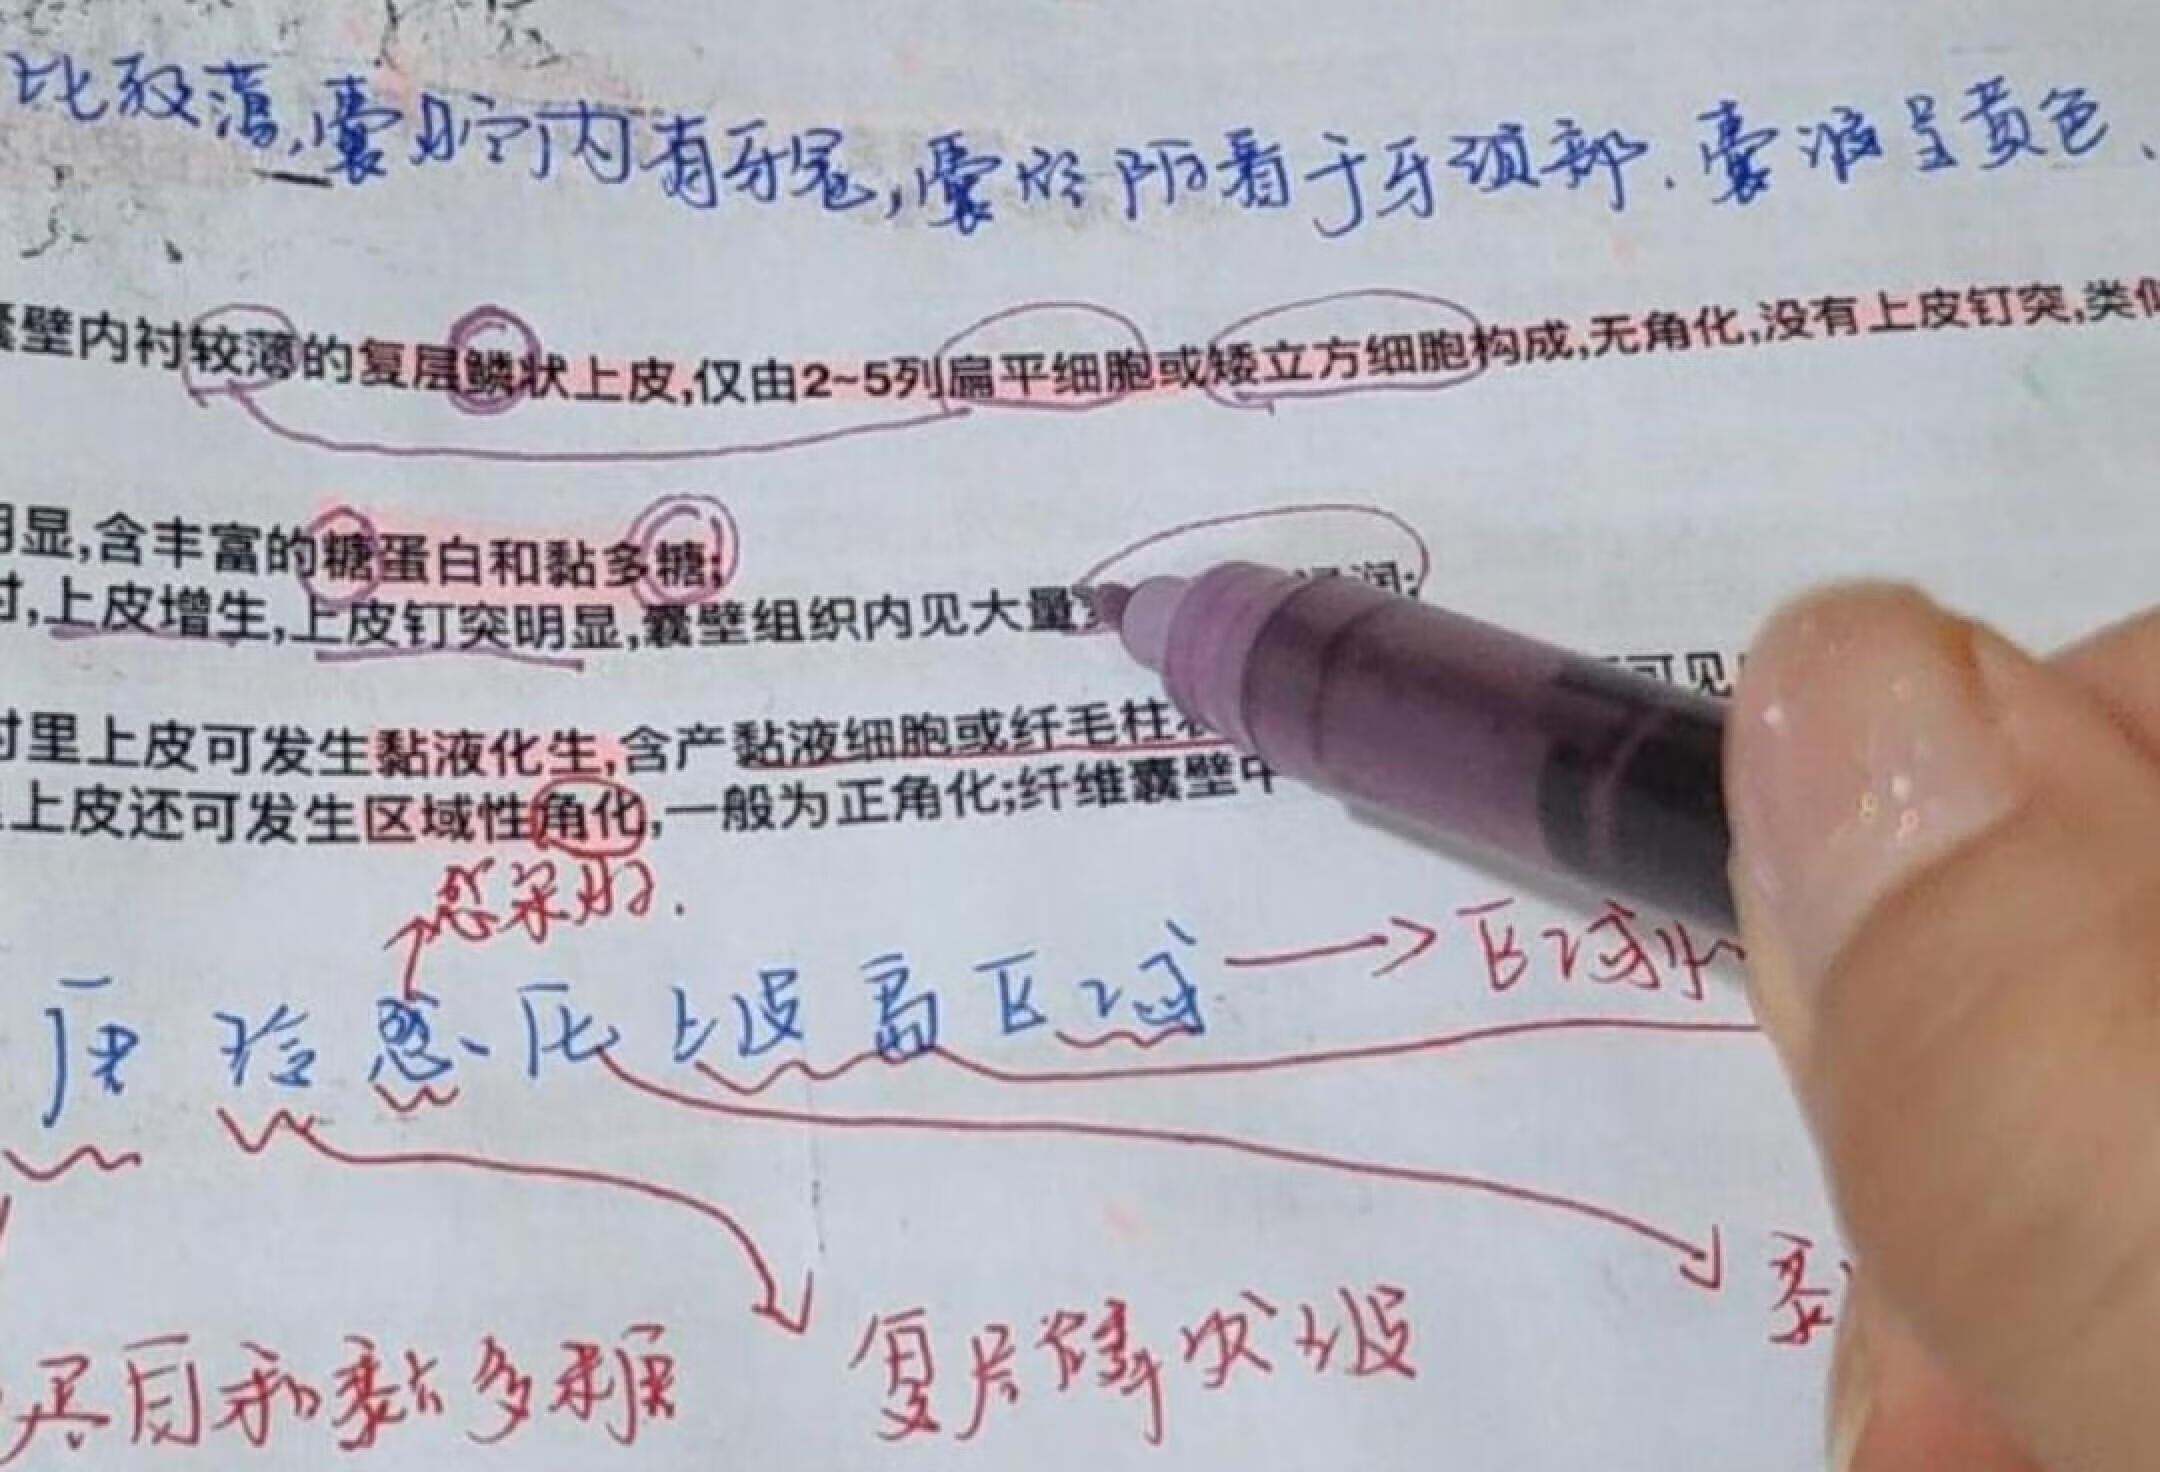 比较薄,囊腔内有牙冠,囊壁附着于牙颈部.囊液呈黄色、
囊壁内衬较薄的复层鳞状上皮,仅由2~5列扁平细胞或矮立方细胞构成,无角化,没有上皮钉突,类似
明显,含丰富的糖蛋白和黏多糖;
时,上皮增生,上皮钉突明显,囊壁组织内见大量 浸润;
可见
衬里上皮可发生黏液化生,含产黏液细胞或纤毛柱
上皮还可发生区域性角化,一般为正角化;纤维囊壁中
感染时.
上皮 区域 → 区域性
蛋白和黏多糖
复层鳞状上皮